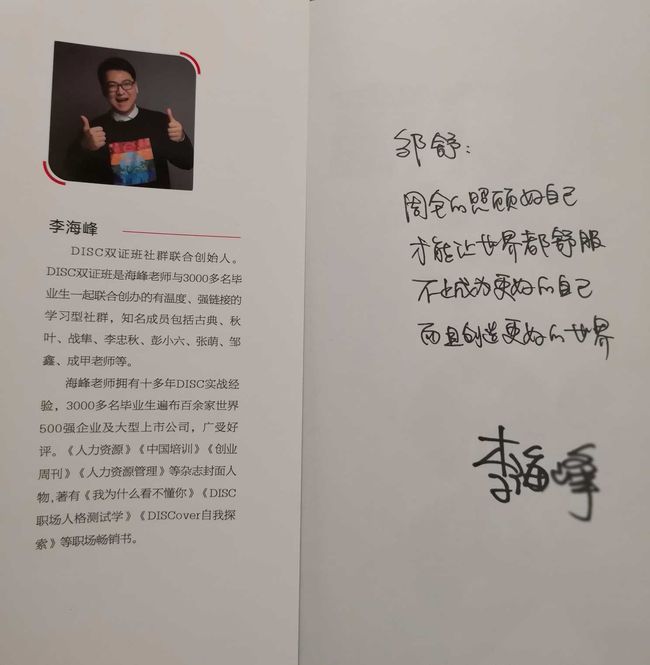 李海峰
DISC双证班社群联合创始人。
DISC双证班是海峰老师与3000多名毕
业生一起联合创办的有温度、强链接的
学习型社群，知名成员包括古典、秋
叶、战隼、李忠秋、彭小六、张萌、邹
鑫、成甲老师等。
海峰老师拥有十多年DISC实战经
验，3000多名毕业生遍布百余家世界
500强企业及大型上市公司，广受好
评。《人力资源》《中国培训》《创业
周刊》《人力资源管理》等杂志封面人
物,著有《我为什么看不懂你》《DISC
职场人格测试学》《DISCover自我探
索》等职场畅销书。
邹舒：
周全的照顾好自己
才能让世界都舒服
不止成为更好的自己
而且创造更好的世界
李海峰